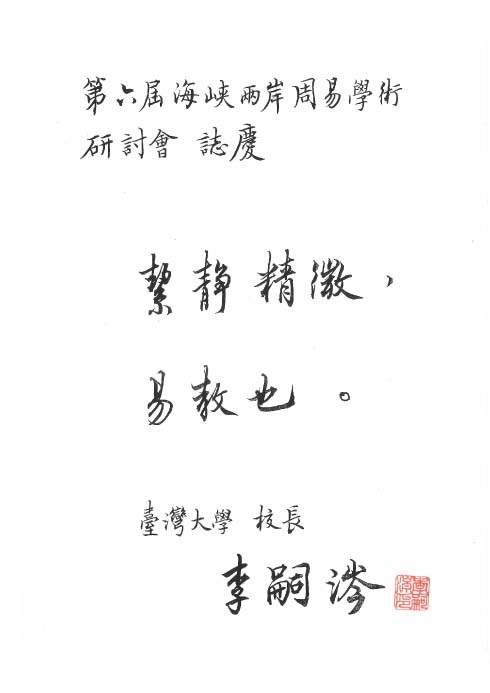 第六屆海峽兩岸周易學術
研討會 誌慶
絜静精微，
易教也。
臺灣大學 校長
李嗣涔